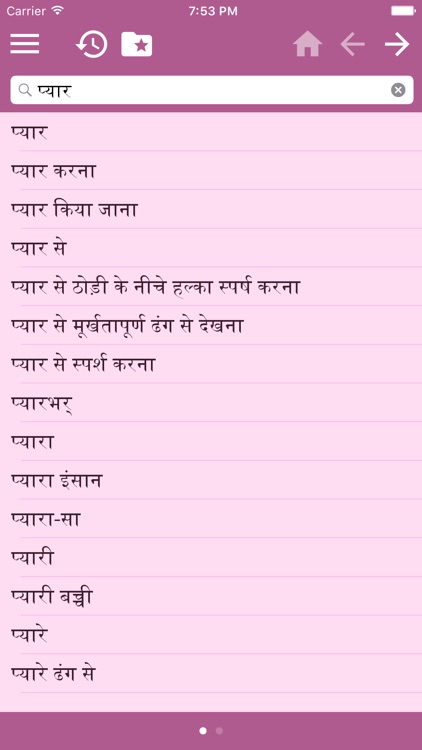 Carrier 7:53 PM
प्यार
प्यार
प्यार करना
प्यार किया जाना
प्यार से
प्यार से ठोड़ी के नीचे हल्का स्पर्ष करना
प्यार से मूर्खतापूर्ण ढंग से देखना
प्यार से स्पर्श करना
प्यारभर्
प्यारा
प्यारा इंसान
प्यारा-सा
प्यारी
प्यारी बच्ची
प्यारे
प्यारे ढंग से